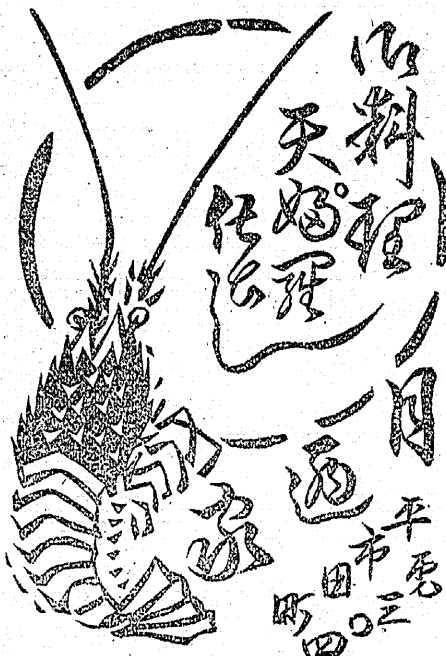 御料理
天婦゜羅
仕出し
月廼家
平市田町
電三〇四